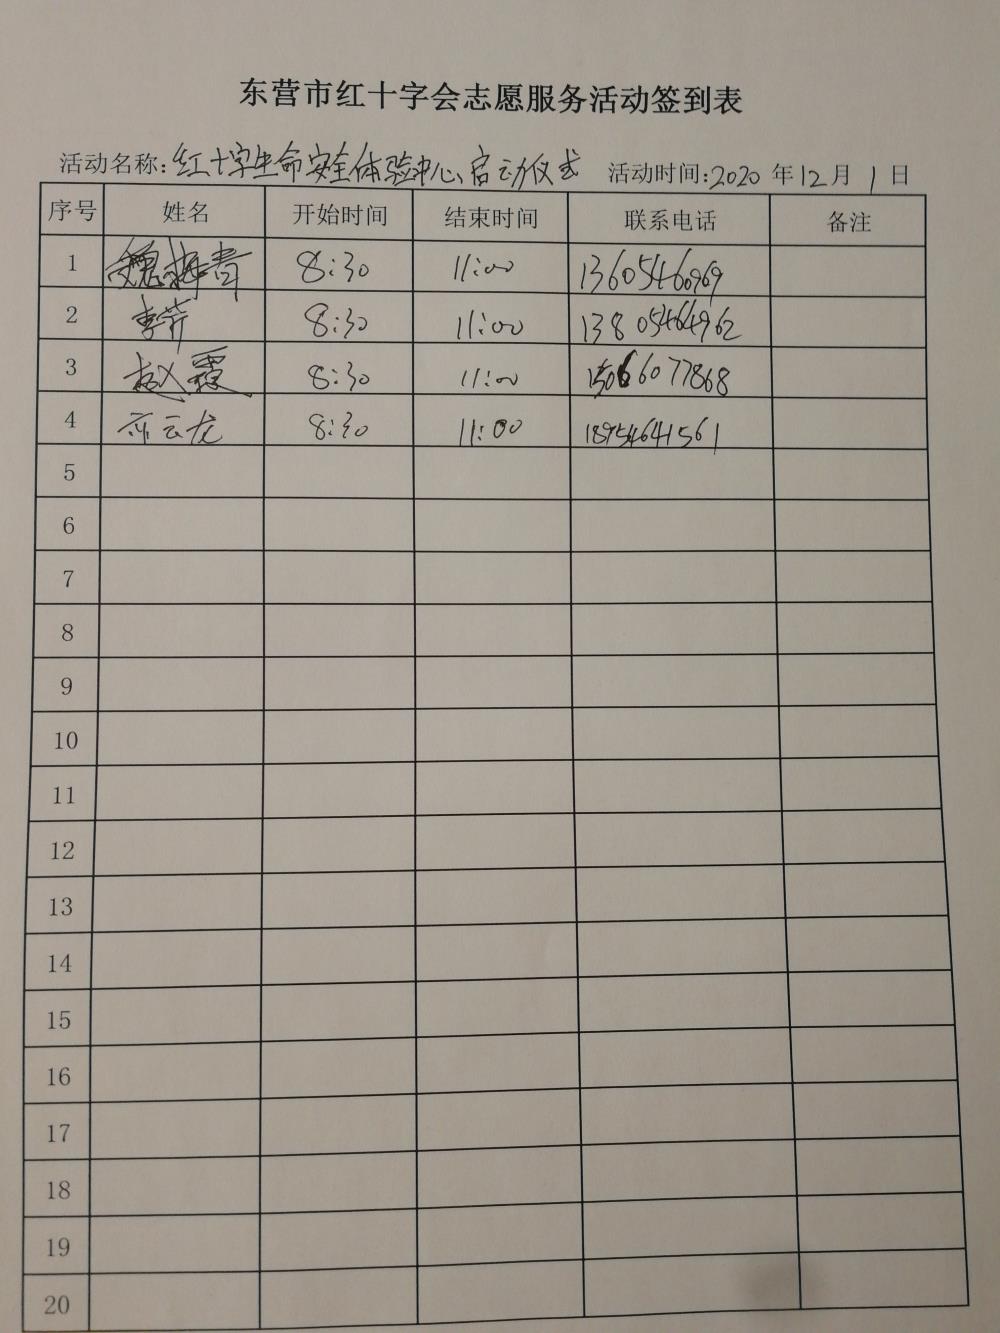 东营市红十字会志愿服务活动签到表
活动名称:红十字生命安全体验中心启动仪式 活动时间:2020年12月1日
序号 姓名 开始时间 结束时间 联系电话 备注
1 魏梅青 8:30 11:00 13605460969
2 李芹 8:30 11:00 13805464962
3 赵霞 8:30 11:00 15066077868
4 云龙 8:30 11:00 18954641561
5
6
7
8
9
10
11
12
13
14
15
16
17
18
19
20